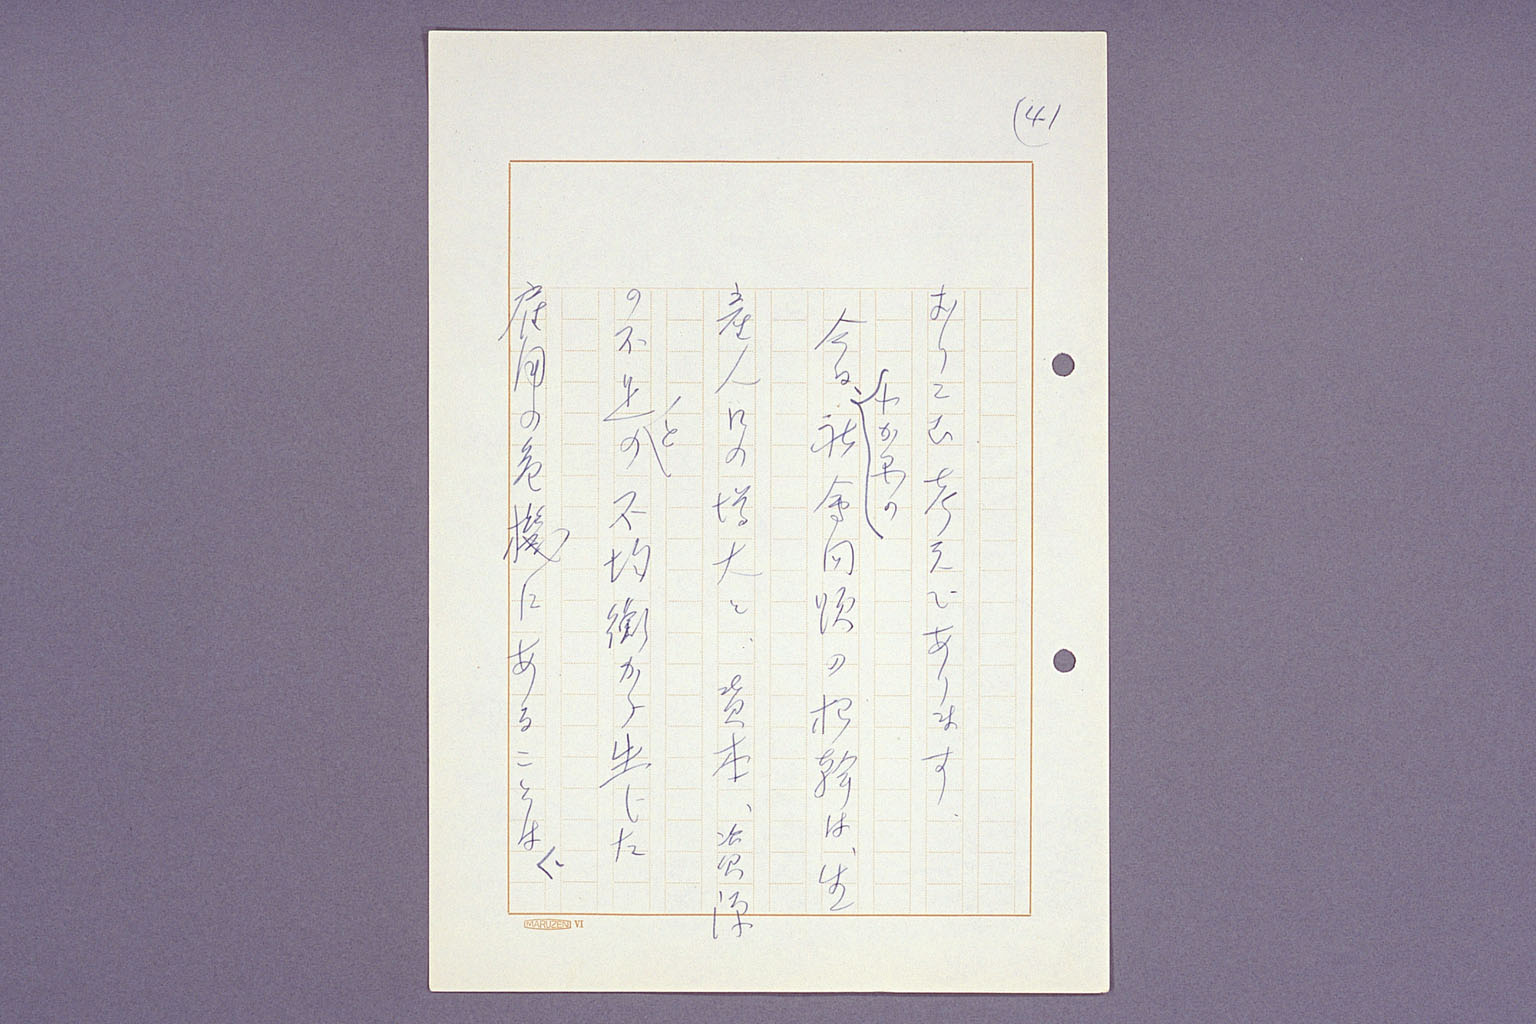 (41
おりこむ考えであります。
今日、わが国の社会問題の根幹は、生
産人口の増大と、資本、資源
の不足との不均衡から生じた
雇用の危機にあることは
MARUZEN VI